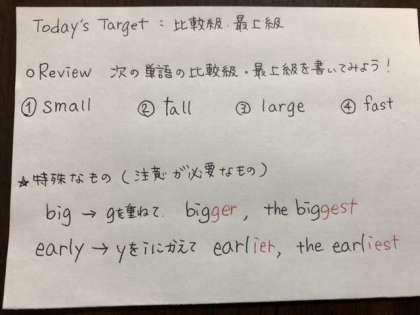 Today's Target : 比較級・最上級
○Review 次の単語の比較級・最上級を書いてみよう！
① small ② tall ③ large ④ fast
★特殊なもの（注意が必要なもの）
big → gを重ねて. bigger, the biggest
early → yをiにかえて earlier, the earliest